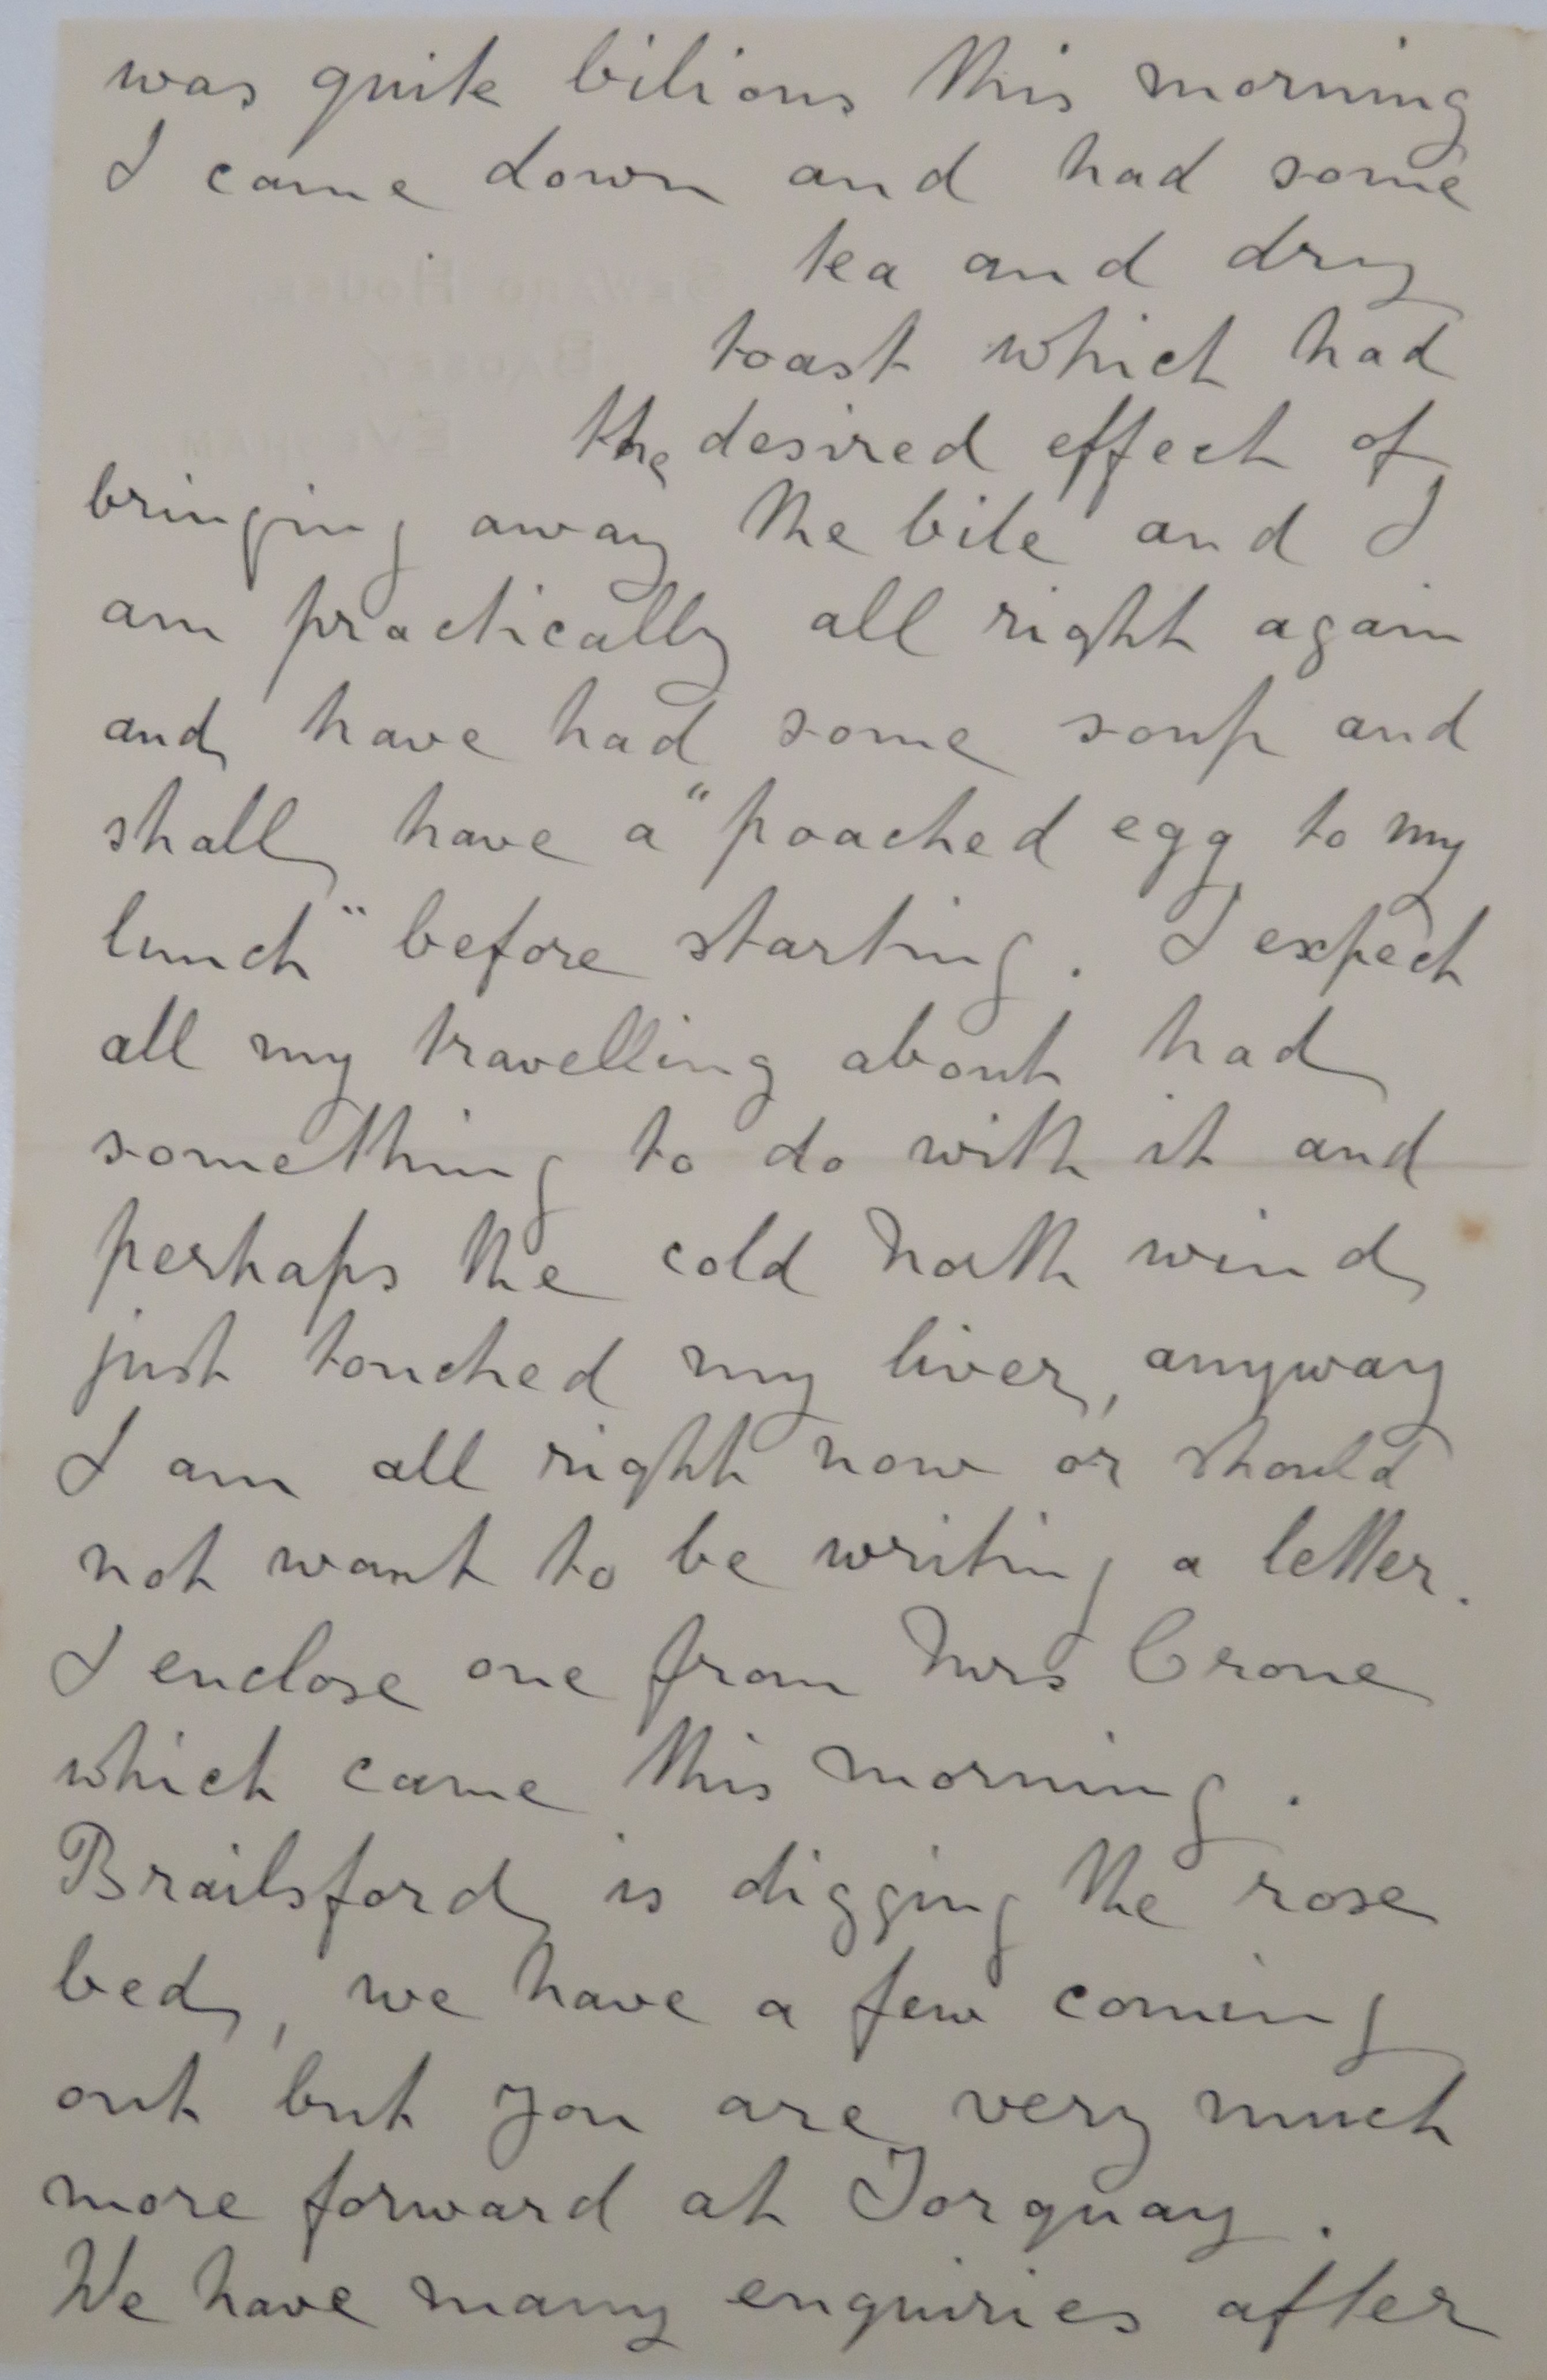 was quite bilious this morning
I came down and had some
tea and dry
toast which had
the desired effect of
bringing away the bile and I
am practically all right again
and have had some soup and
shall have a "poached egg to my
lunch" before starting. I expect
all my travelling about had
something to do with it and
perhaps the cold North wind
just touched my liver, anyway
I am all right now or should
not want to be writing a letter.
I enclose one from Mrs Crone
which came this morning.
Brailsford is digging the rose
bed, we have a few coming
out but you are very much
more forward at Torquay.
We have many enquiries after